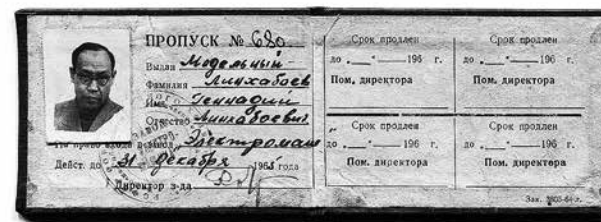 ПРОПУСК № 680
Выдан Модельный
Фамилия Линхабоев
Имя Геннадий
Отчество Линхабоевич
На право входа в завод Электромаш
Дейст. до 31 декабря 1965 года
Директор з-да
Срок продлен
до „___“ ___ 196 г.
Пом. директора
Срок продлен
до „___“ ___ 196 г.
Пом. директора
Срок продлен
до „___“ ___ 196 г.
Пом. директора
Срок продлен
до „___“ ___ 196 г.
Пом. директора